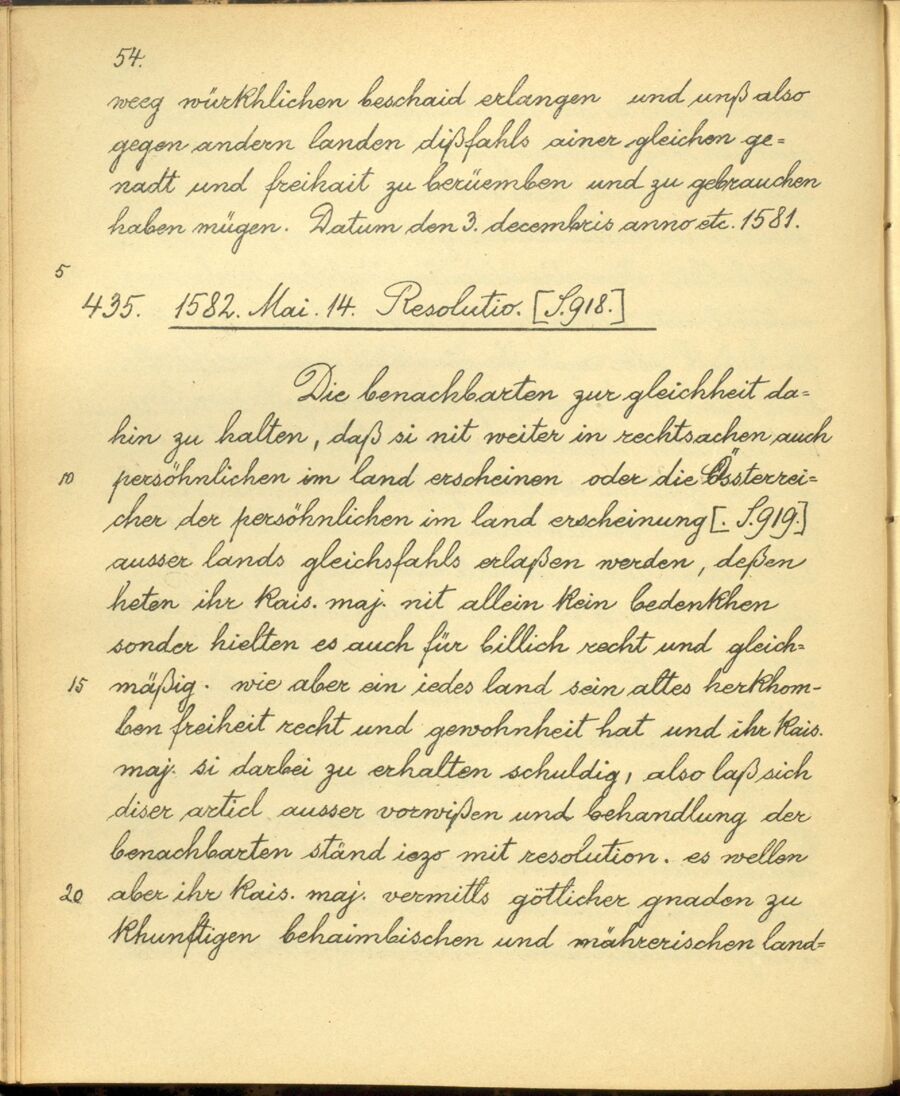 54.
weeg würkhlichen beschaid erlangen und unß also
gegen andern landen dißfahls ainer gleichen ge=
nadt und freihait zu berüemben und zu gebrauchen
haben mügen. Datum den 3. decembris anno etc. 1581.
5
435. 1582. Mai. 14. Resolutio. [S.918.]
Die benachbarten zur gleichheit da=
hin zu halten, daß si nit weiter in rechtsachen auch
10 persöhnlichen im land erscheinen oder die Össterrei=
cher der persöhnlichen im land erscheinung [. S.919.]
ausser lands gleichsfahls erlaßen werden, deßen
heten ihr kais. maj. nit allein kein bedenkhen
sonder hielten es auch für billich recht und gleich=
15 mäßig. wie aber ein iedes land sein altes herkhom-
ben freiheit recht und gewohnheit hat und ihr kais.
maj. si darbei zu erhalten schuldig, also laß sich
diser articl ausser vorwißen und behandlung der
benachbarten ständ iezo mit resolution. es wellen
20 aber ihr kais. maj. vermitls götlicher gnaden zu
khunftigen behaimbischen und mährerischen land=